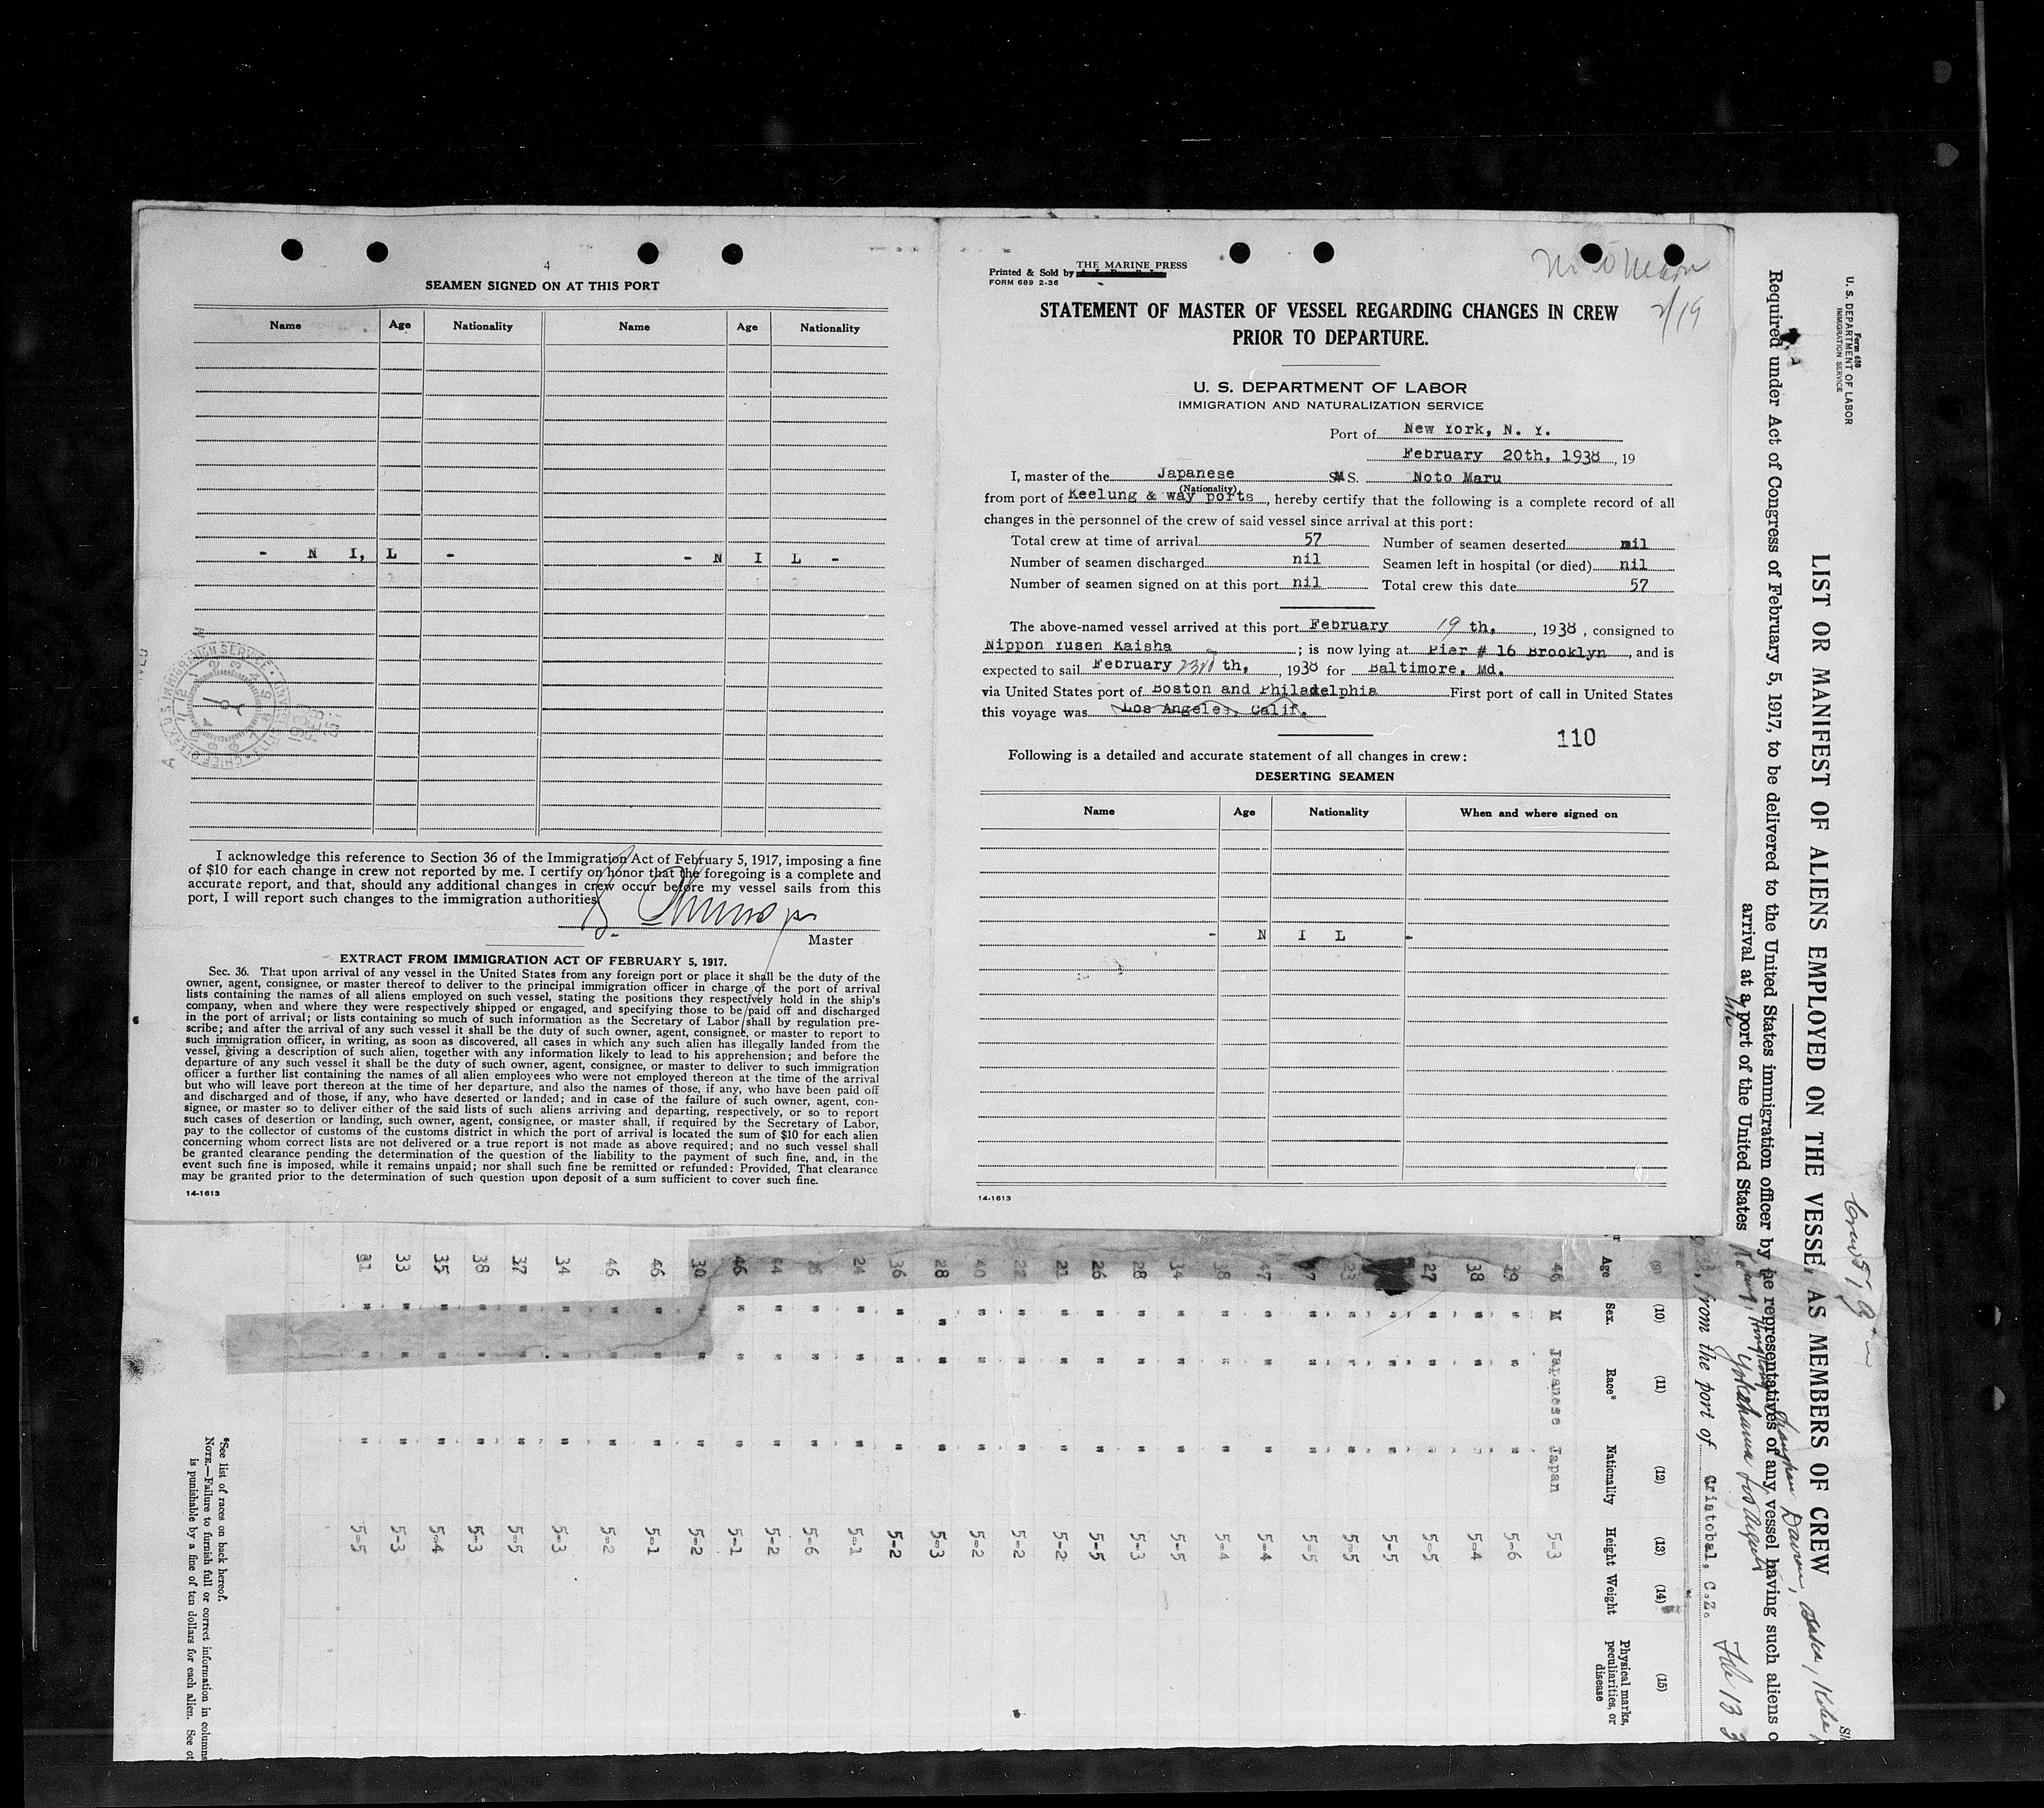 4
SEAMEN SIGNED ON AT THIS PORT
Name Age Nationality Name Age Nationality
- N I, L - - N I L -
I acknowledge this reference to Section 36 of the Immigration Act of February 5, 1917, imposing a fine
of $10 for each change in crew not reported by me. I certify on honor that the foregoing is a complete and
accurate report, and that, should any additional changes in crew occur before my vessel sails from this
port, I will report such changes to the immigration authorities
Master
EXTRACT FROM IMMIGRATION ACT OF FEBRUARY 5, 1917.
Sec. 36. That upon arrival of any vessel in the United States from any foreign port or place it shall be the duty of the
owner, agent, consignee, or master thereof to deliver to the principal immigration officer in charge of the port of arrival
lists containing the names of all aliens employed on such vessel, stating the positions they respectively hold in the ship's
company, when and where they were respectively shipped or engaged, and specifying those to be paid off and discharged
in the port of arrival; or lists containing so much of such information as the Secretary of Labor shall by regulation pre-
scribe; and after the arrival of any such vessel it shall be the duty of such owner, agent, consignee, or master to report to
such immigration officer, in writing, as soon as discovered, all cases in which any such alien has illegally landed from the
vessel, giving a description of such alien, together with any information likely to lead to his apprehension; and before the
departure of any such vessel it shall be the duty of such owner, agent, consignee, or master to deliver to such immigration
officer a further list containing the names of all alien employees who were not employed thereon at the time of the arrival
but who will leave port thereon at the time of her departure, and also the names of those, if any, who have been paid off
and discharged and of those, if any, who have deserted or landed; and in case of the failure of such owner, agent, con-
signee, or master so to deliver either of the said lists of such aliens arriving and departing, respectively, or so to report
such cases of desertion or landing, such owner, agent, consignee, or master shall, if required by the Secretary of Labor,
pay to the collector of customs of the customs district in which the port of arrival is located the sum of $10 for each alien
concerning whom correct lists are not delivered or a true report is not made as above required; and no such vessel shall
be granted clearance pending the determination of the question of the liability to the payment of such fine, and, in the
event such fine is imposed, while it remains unpaid; nor shall such fine be remitted or refunded: Provided, That clearance
may be granted prior to the determination of such question upon deposit of a sum sufficient to cover such fine.
14-1613
THE MARINE PRESS
Printed & Sold by
FORM 689 2-36
2/19
STATEMENT OF MASTER OF VESSEL REGARDING CHANGES IN CREW
PRIOR TO DEPARTURE.
U. S. DEPARTMENT OF LABOR
IMMIGRATION AND NATURALIZATION SERVICE
Port of New York, N. Y.
February 20th, 1938, 19
I, master of the Japanese S.M S. Noto Maru
(Nationality)
from port of Keelung & way ports, hereby certify that the following is a complete record of all
changes in the personnel of the crew of said vessel since arrival at this port:
Total crew at time of arrival 57 Number of seamen deserted nil
Number of seamen discharged nil Seamen left in hospital (or died) nil
Number of seamen signed on at this port nil Total crew this date 57
The above-named vessel arrived at this port February 19 th, , 1938, consigned to
Nippon Yusen Kaisha ; is now lying at Pier # 16 Brooklyn, and is
expected to sail February 23rd th, , 1938 for Baltimore, Md.
via United States port of Boston and Philadelphia First port of call in United States
this voyage was Los Angeles, Calif.
110
Following is a detailed and accurate statement of all changes in crew:
DESERTING SEAMEN
Name Age Nationality When and where signed on
- N I L -
14-1613
Form 689
U. S. DEPARTMENT OF LABOR
IMMIGRATION SERVICE
LIST OR MANIFEST OF ALIENS EMPLOYED ON THE VESSEL AS MEMBERS OF CREW
Required under Act of Congress of February 5, 1917, to be delivered to the United States immigration officer by the representatives of any vessel having such aliens o
arrival at a port of the United States
, from the port of Cristobal, C.Z.
(10) (11) (12) (13) (14) (15)
Age Sex. Race* Nationality Height Weight Physical marks, peculiarities, or disease
46 M Japanese Japan 5-3
39 " " " 5-6
38 " " " 5-4
27 " " " 5-5
" " " 5-5
23 " " " 5-5
" " " 5-5
47 " " " 5-4
38 " " " 5-4
34 " " " 5-5
28 " " " 5-3
26 " " " 5-5
21 " " " 5-2
22 " " " 5-2
40 " " " 5-2
28 " " " 5-3
36 " " " 5-2
24 " " " 5-1
" " " 5-6
44 " " " 5-2
46 " " " 5-1
30 " " " 5-2
46 " " " 5-1
46 " " " 5-2
34 " " " 5-3
37 " " " 5-5
38 " " " 5-3
35 " " " 5-4
33 " " " 5-3
31 " " " 5-5
*See list of races on back hereof.
NOTE.—Failure to furnish full or correct information in columns
is punishable by a fine of ten dollars for each alien. See ot